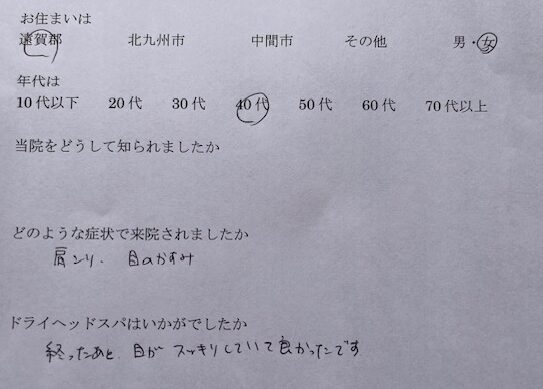 お住まいは
遠賀郡 北九州市 中間市 その他 男・女
年代は
10代以下 20代 30代 40代 50代 60代 70代以上
当院をどうして知られましたか
どのような症状で来院されましたか
肩コリ、目のかすみ
ドライヘッドスパはいかがでしたか
終ったあと、目がスッキリしていて良かったです